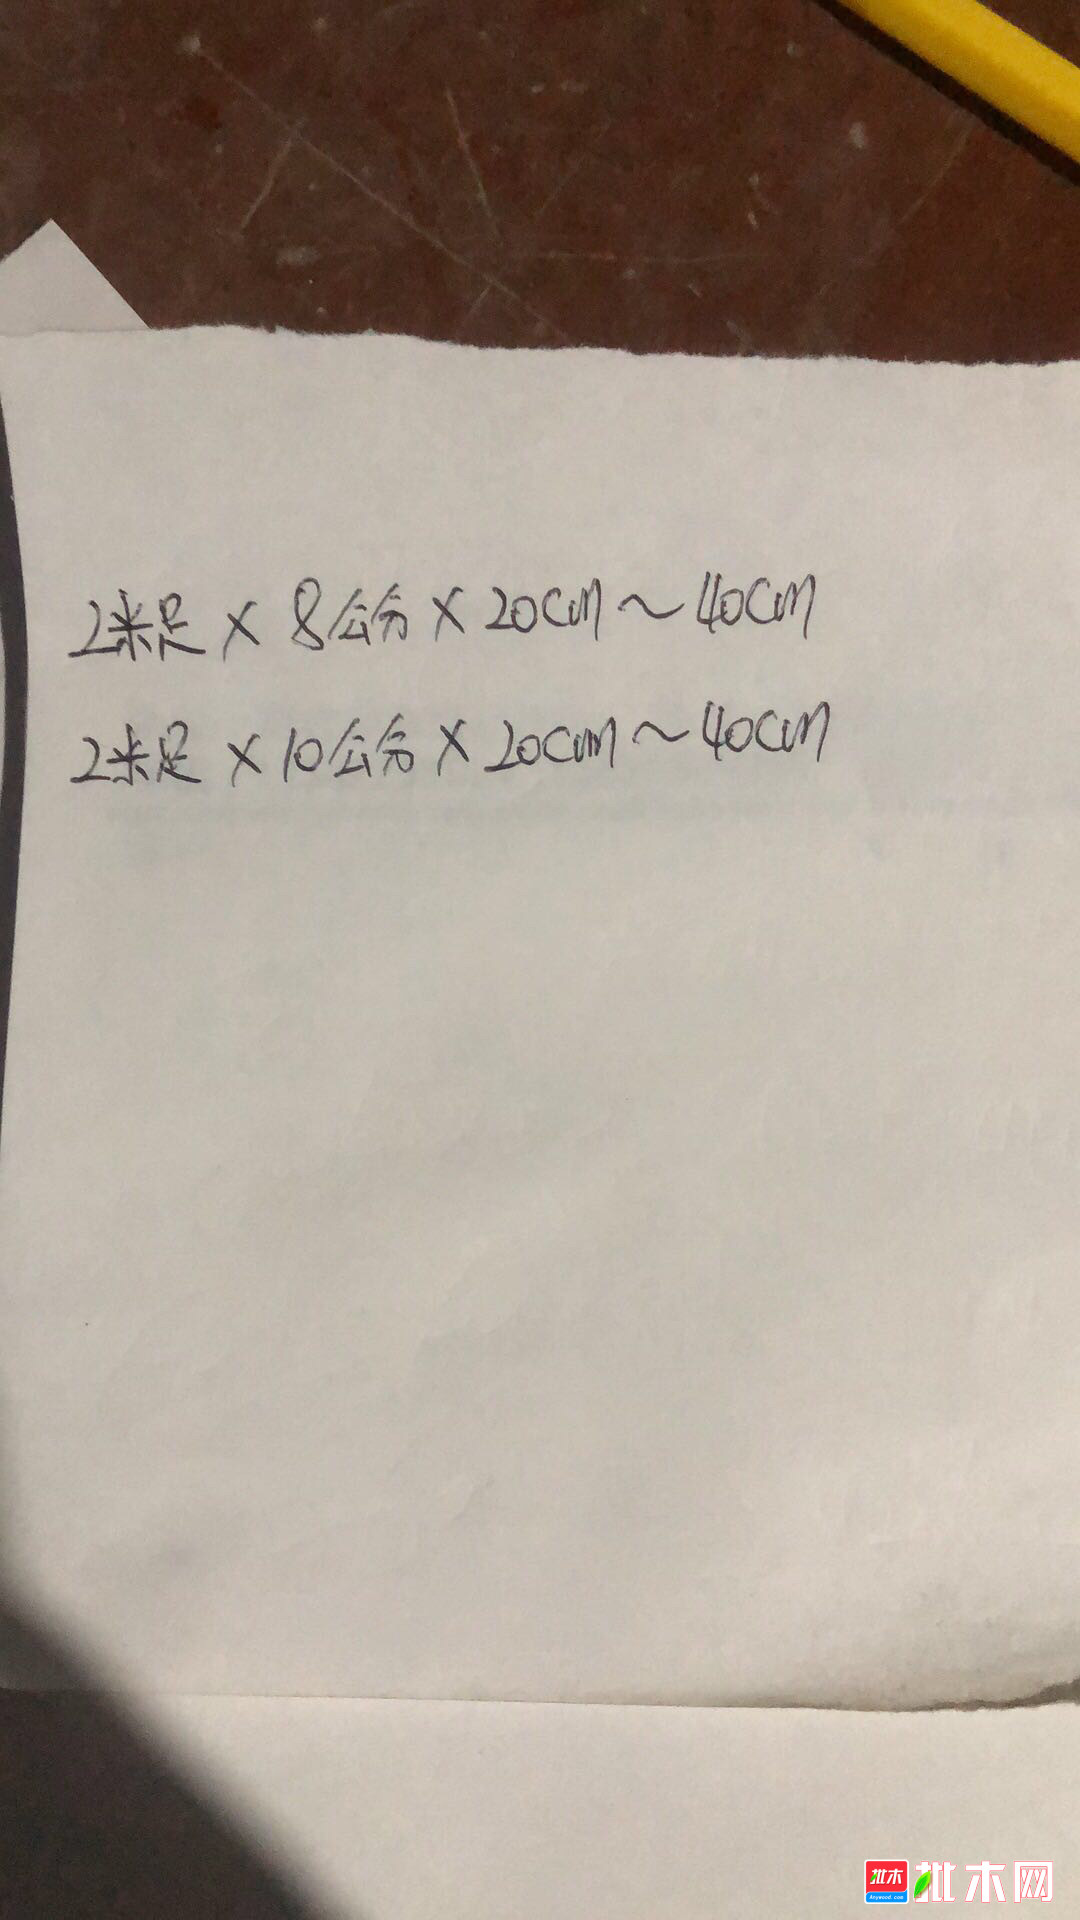 2米足×8公分×20cm～40cm
2米足×10公分×20cm～40cm
批木
Anywood.com
批木网